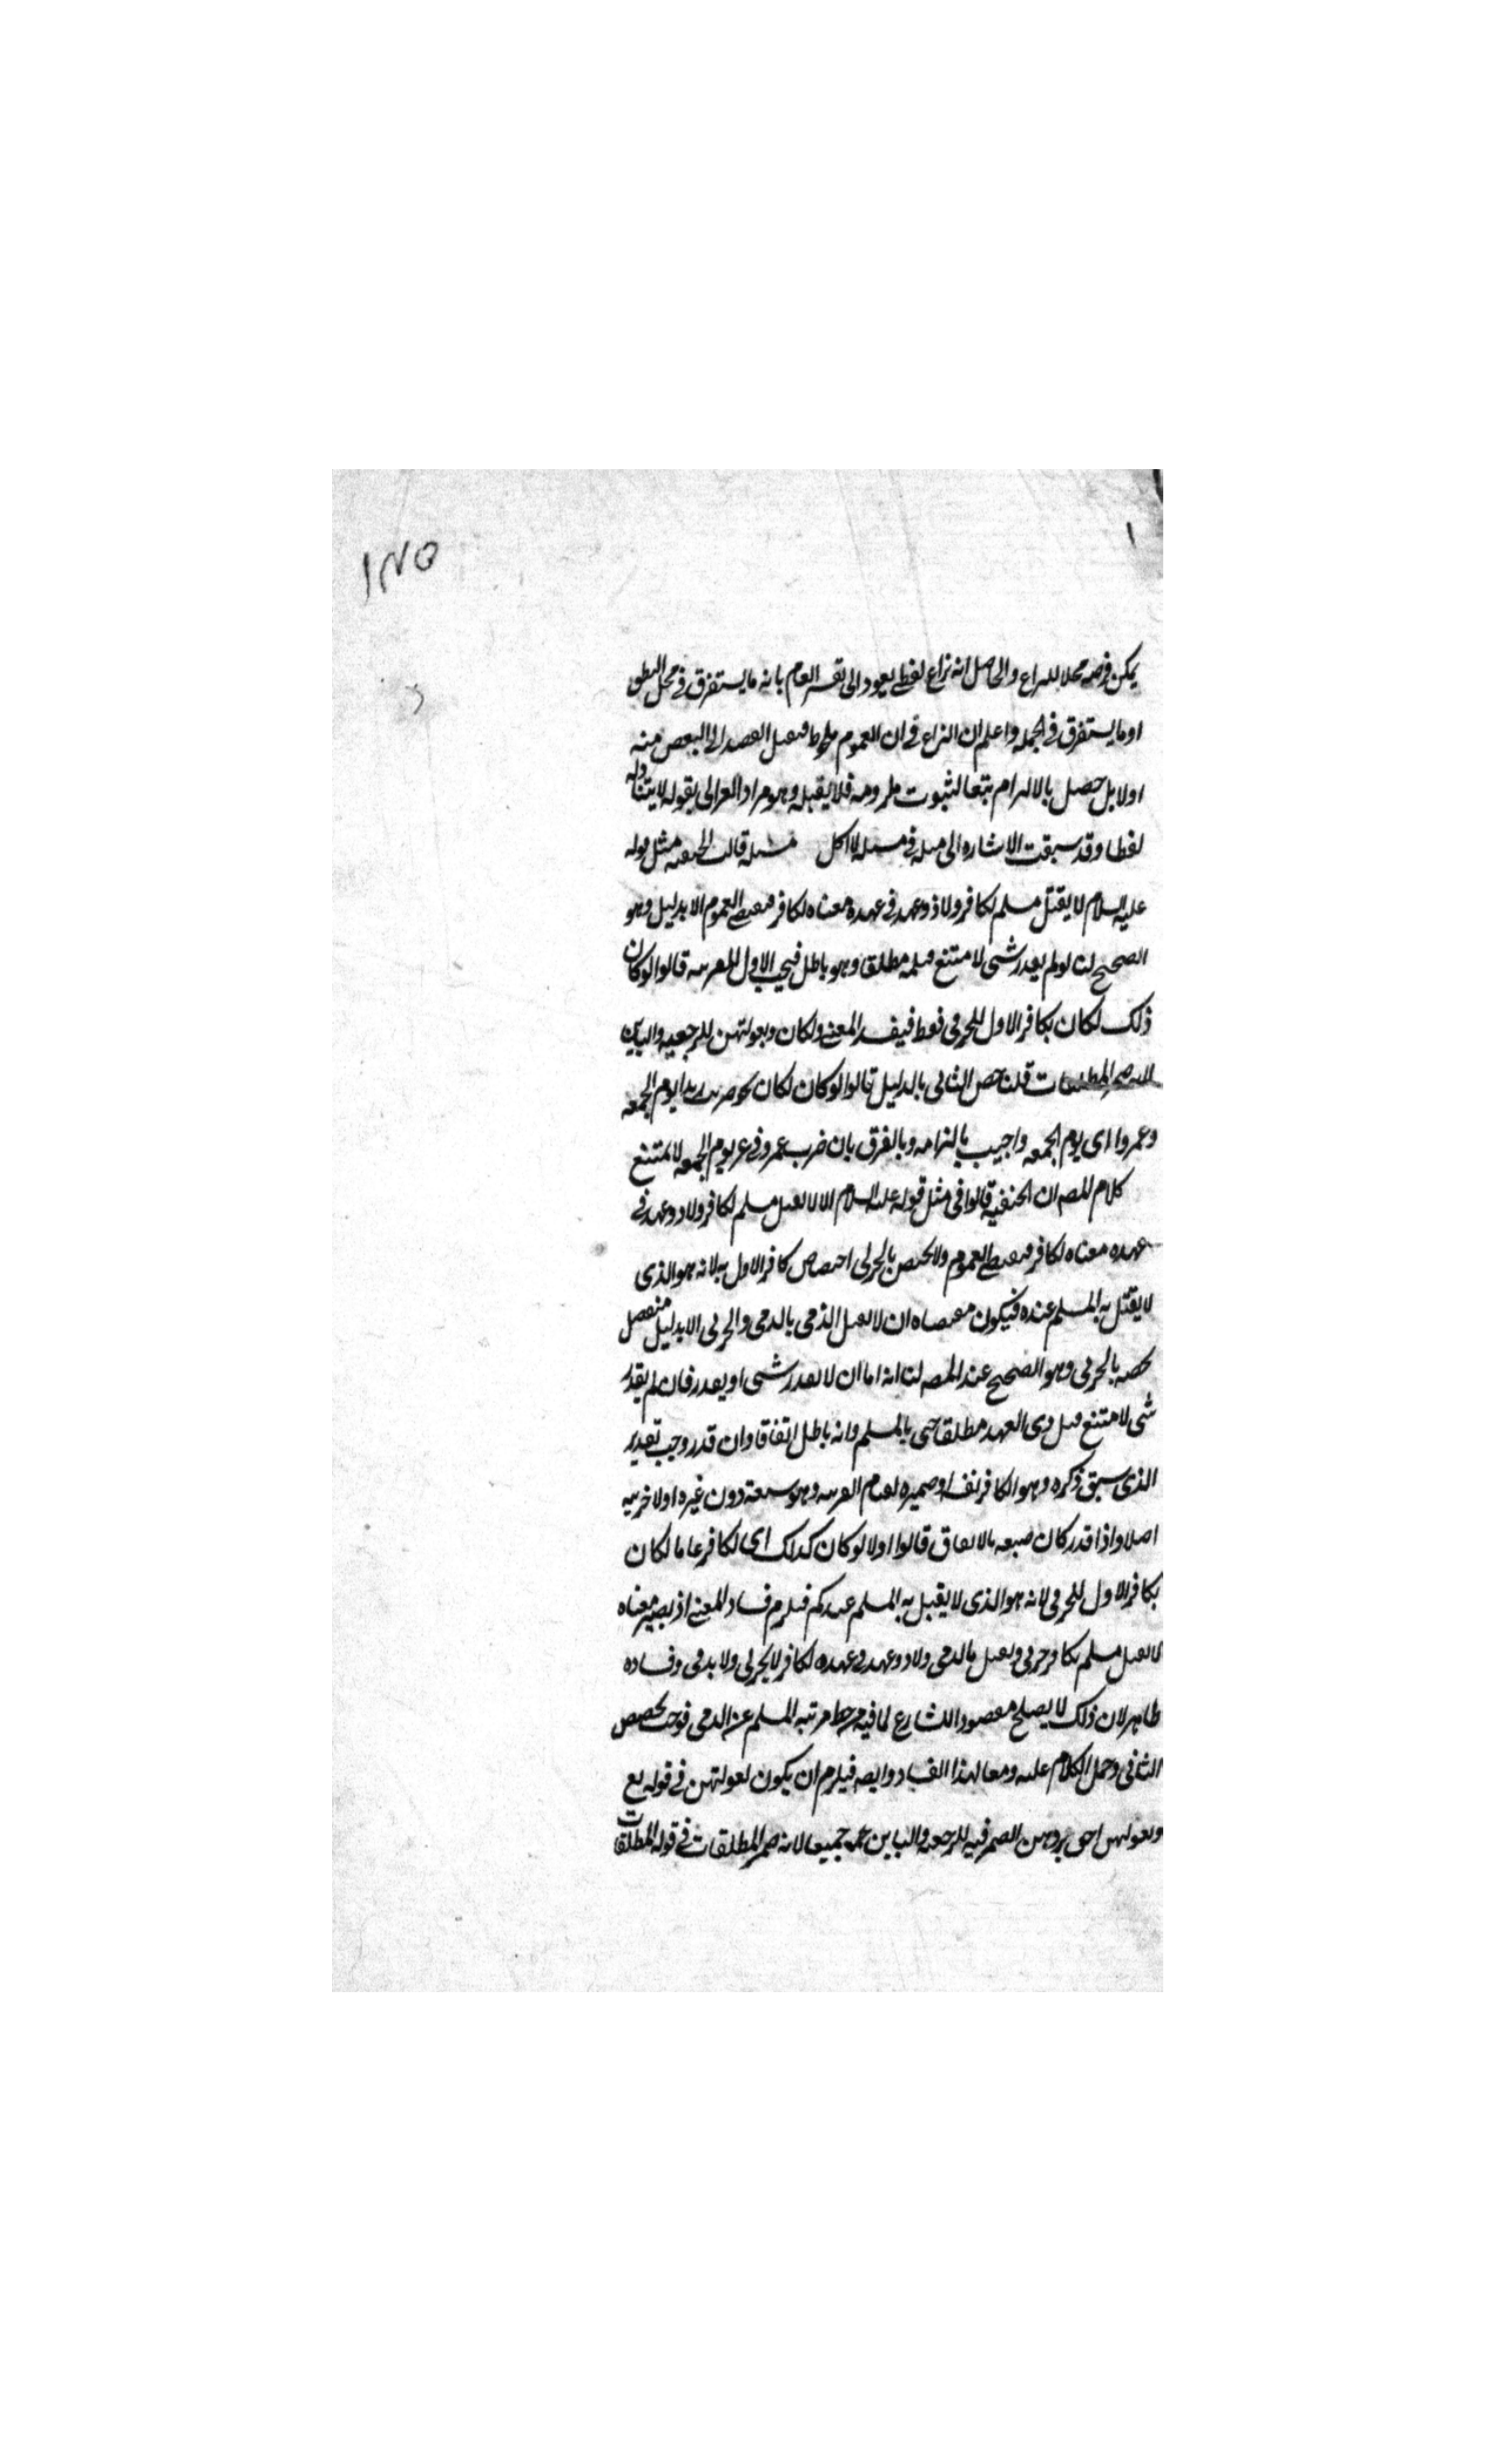 ١٨٥
١
يمكن فرضه محلا للنزاع والحاصل انه نزاع لفظي يعود الى تفسير العام بانه ما يستغرق في محل النطق
او ما يستغرق في الجملة واعلم ان النزاع في ان العموم ملحوظ فيقبل القصد الى البعض منه
اولا بل حصل بالالتزام تبعا لثبوت ملزومه فلا يقبله وهو مراد الغزالي بقوله لا يتناوله
لفظا وقد سبقت الاشاره الى مثله في مسله لا اكل مسله قالت الحنفيه مثل قوله
عليه السلام لا يقتل مسلم بكافر ولا ذو عهد في عهده معناه بكافر فيقتضي العموم الا بدليل وهو
الصحيح لنا لو لم يقدر شي لامتنع قتله مطلقا وهو باطل فيجب الاول للقرينه قالوا لو كان
ذلك لكان بكافر الاول للحربي فقط فيفسد المعنى ولكان وبعولتهن للرجعيه والباين
لانه ضمير المطلقات قلنا خص الثاني بالدليل قالوا لو كان لكان نحو ضربت زيدا يوم الجمعه
وعمروا اى يوم الجمعه واجيب بالتزامه وبالفرق بان ضرب عمرو في غير يوم الجمعه لا يمتنع
كلام المصه ان الحنفيه قالوا في مثل قوله عليه السلام الا لا يقتل مسلم بكافر ولا ذو عهد في
عهده معناه بكافر فيقتضي العموم ولا يختص بالحربي اختصاص كافر الاول به لانه هو الذى
لا يقتل به المسلم عنده فيكون مقتضاه ان لا يقتل الذمي بالذمي والحربي الا بدليل منفصل
يخصه بالحربي وهو الصحيح عند المصه لنا انه اما ان لا يقدر شي او يقدر فان لم يقدر
شي لامتنع قتل ذى العهد مطلقا حتى بالمسلم وانه باطل اتفاقا وان قدر وجب تقدير
الذى سبق ذكره وهو الكافر نفسه او ضميره لقيام القرينه وهو سبقه دون غيره اذ لا قرينه
اصلا واذا قدر كان صيغه بالاتفاق قالوا اولا لو كان كذلك اى بكافر عاما لكان
بكافر الاول للحربي لانه هو الذى لا يقتل به المسلم عندكم فيلزم فساد المعنى اذ يصير معناه
لا يقتل مسلم بكافر حربي ويقتل بالذمي ولا ذو عهد في عهده بكافر لا بحربي ولا بذمي وفساده
ظاهر لان ذلك لا يصلح مقصودا للشارع لما فيه من حط مرتبه المسلم عن الذمي فوجب تخصيص
الثاني وحمل الكلام عليه دفعا لهذا الفساد وايضا فيلزم ان يكون بعولتهن في قوله تع
وبعولتهن احق بردهن الضمير فيه للرجعيه والباين جميعا لانه ضمير المطلقات في قوله المطلقات